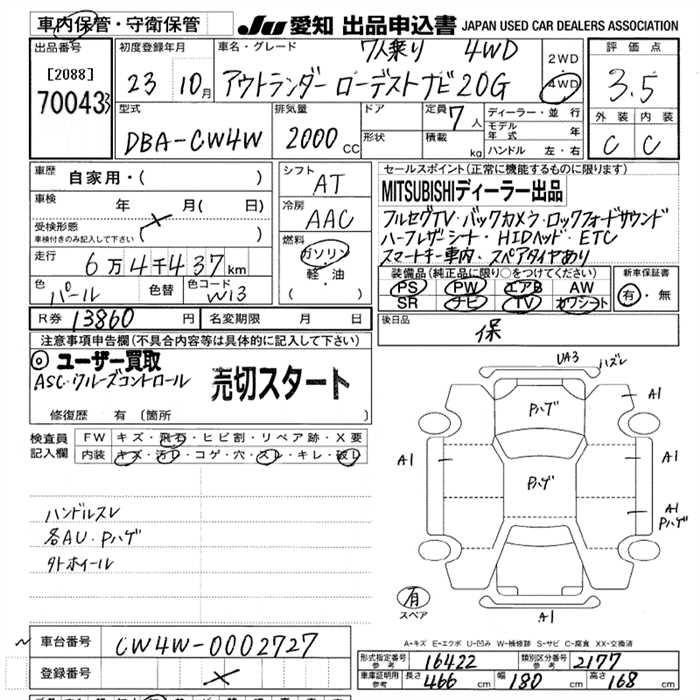 車内保管・守衛保管 JU 愛知 出品申込書 JAPAN USED CAR DEALERS ASSOCIATION
出品番号 [2088] 70043
初度登録年月 23 10月
車名・グレード 7人乗り 4WD
アウトランダー ローデストナビ20G
2WD
4WD
評価点 3.5
外装 内装
C C
型式 DBA-CW4W
排気量 2000 CC
ドア
形状
定員 7人
積載 kg
ディーラー・並行
モデル年式 年
ハンドル 左・右
車歴 自家用・( )
車検 年 月( 日)
受検形態 ( )
車検付きのみ記入して下さい
走行 6万4千437km
色 パール 色替 色コード W13
シフト AT
冷房 AAC
燃料 ガソリン
軽・油
( )
セールスポイント(正常に機能するものに限ります)
MITSUBISHIディーラー出品
フルセグTV・バックカメラ・ロックフォードサウンド
ハーフレザーシート・HIDヘッド・ETC
スマートキー車内・スペアタイヤあり
装備品(純正品に限り○をつけてください)
PS PW エアB AW
SR ナビ TV カワシート
新車保証書
有・無
R券 13860円 名変期限 月 日
後日品 保
注意事項申告欄(不具合内容等は具体的に記入して下さい)
◎ユーザー買取
ASC・クルーズコントロール 売切スタート
修復歴 有 (箇所 )
検査員記入欄 FW キズ・飛石・ヒビ割・リペア跡・X要
内装 キズ・汚レ・コゲ・穴・スレ・キレ・破レ
ハンドルスレ
各AU・Pハゲ
外ホイール
UA3 ハズレ
Pハゲ
A1
A1
Pハゲ
A1
Pハゲ
A1
有
スペア
A-キズ E-エクボ U-凹み W-補修跡 S-サビ C-腐食 XX-交換済
車台番号 CW4W-0002727
登録番号
形式指定番号 参考 16422 類別区分番号 参考 2177
車庫証明用 参考 長さ 466 cm 幅 180 cm 高さ 168 cm